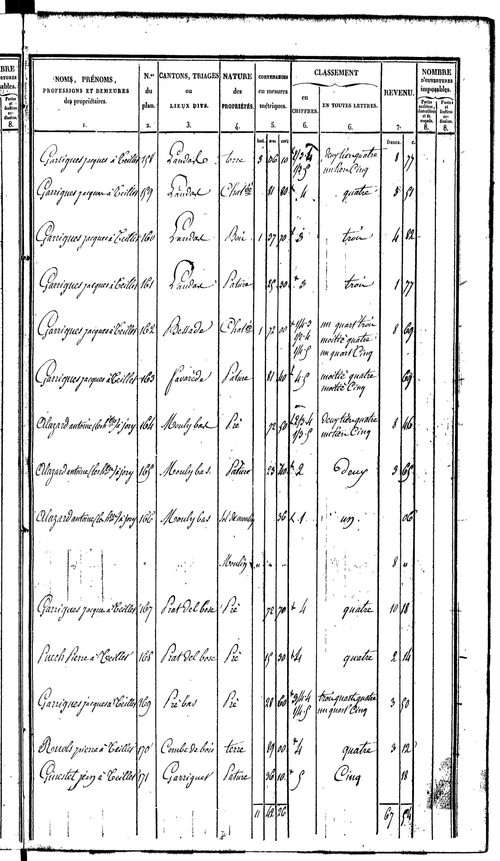 NOMS, PRÉNOMS, PROFESSIONS ET DEMEURES des propriétaires. 1.
N.os du plan. 2.
CANTONS, TRIAGES OU LIEUX DITS. 3.
NATURE des PROPRIÉTÉS. 4.
CONTENANCES en mesures métriques. 5.
CLASSEMENT
en CHIFFRES. 6.
EN TOUTES LETTRES. 6.
REVENU. 7.
NOMBRE D'OUVERTURES imposables.
8. 8.
francs. c.
Garrigues jacques à Teillet 158 terre 3 06 10 2/3-4 1/3-5 deux tiers quatre un tiers Cinq 8 77
Garrigues jacques à Teillet 159 81 80 4 quatre 5 51
Garrigues jacques à Teillet 160 Bois 1 37 70 3 trois 4 82
Garrigues jacques à Teillet 161 Pature 25 30 3 trois 1 77
Garrigues jacques à Teillet 162 Bessada 1 72 00 1/4-3 1/2-4 1/4-5 un quart trois moitié quatre un quart Cinq 8 69
Garrigues jacques à Teillet 163 favarède Pature 81 40 4-5 moitié quatre moitié Cinq 69
Alazard antoine 164 Mouly bas Pré 72 50 2/3-4 1/3-5 deux tiers quatre un tiers Cinq 8 46
Alazard antoine 165 Mouly bas Pature 23 70 2 deux 3 65
Alazard antoine 166 Mouly bas Sol de moulin 36 1 un 06
Moulin " " " 8 "
Garrigues jacques à Teillet 167 Prat del bosc Pré 72 70 4 quatre 10 18
Puech Pierre à Teillet 168 Prat del bosc Pré 15 30 4 quatre 2 14
Garrigues jacques à Teillet 169 Pré bas Pré 28 60 3/4-4 1/4-5 trois quarts quatre un quart Cinq 3 50
pierre à Teillet 170 Combe de bois terre 89 00 4 quatre 3 12
Ginestet jean à Teillet 171 Garrigues Pature 36 10 5 Cinq 18
11 42 26 67 54